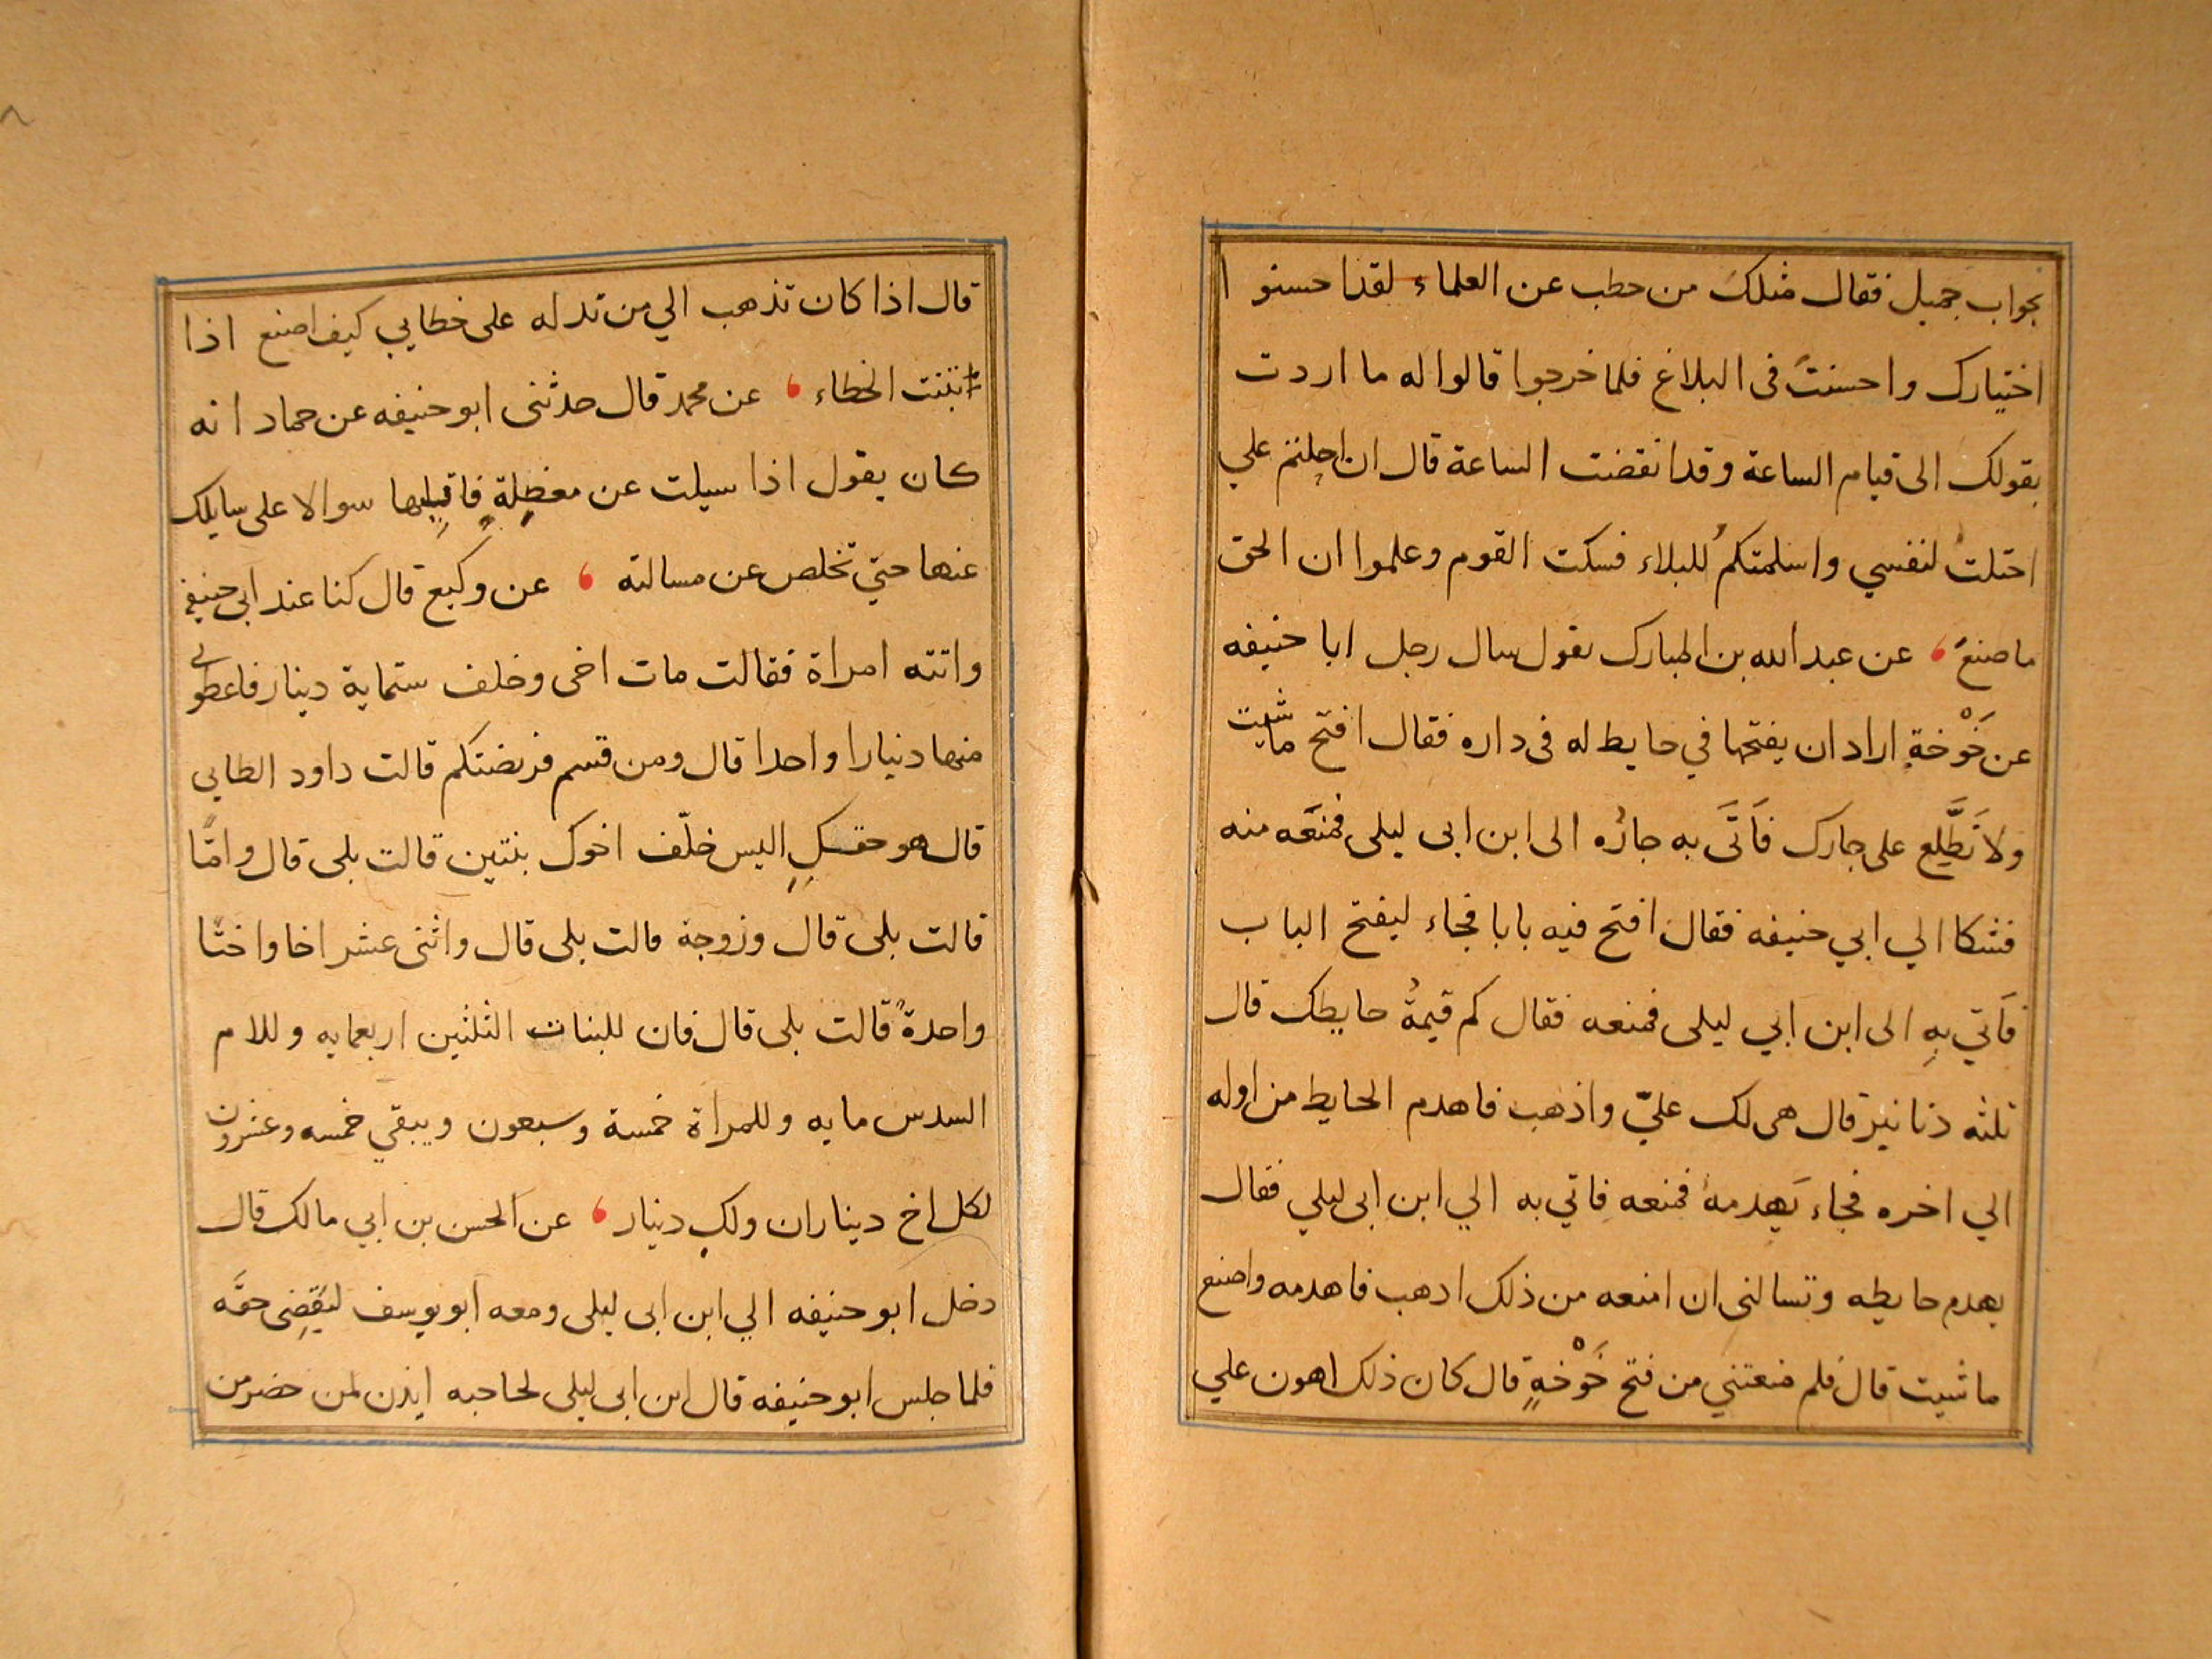 بجواب جميل فقال مثلك من خطب عن العلماء لقد احسنو ا
اختيارك واحسنتَ فى البلاغ فلما خرجوا قالوا له ما اردت
بقولك الى قيام الساعة وقد انقضت الساعة قال ان احلتم علي
احتلتُ لنفسي واسلمتكم للبلاء فسكت القوم وعلموا ان الحق
ما صنعَ عن عبد الله بن المبارك يقول سال رجل ابا حنيفه
عن خَوْخةٍ اراد ان يفتحها في حايط له فى داره فقال افتح ماشيت
ولا تَطَّلِع على جارك فَاَتَى به جارُه الى ابن ابى ليلى فمنعَه منه
فشكا الي ابي حنيفه فقال افتح فيه بابا فجاء ليفتح الباب
فَاَتي بهِ الى ابن اَبي ليلى فمنعه فقال كم قيمةُ حايطك قال
ثلثه دنانير قال هى لك عليّ واذهب فاهدم الحايط من اوله
الي اخره فجاء يَهدمهُ فمنعه فاتي به الي ابن ابى ليلي فقال
يهدم حايطه وتسالنى ان امنعه من ذلك ادهب فاهدمه واصنع
ماشيت قال فلم منعتني من فتح خَوْخةٍ قال كان ذلك اهون علي
قال اذا كان تذهب الي من تدله على خطايي كيف اصنع اذا
تبينت الخطاء عن محمد قال حدثنى ابو حنيفه عن حماد انه
كان يقول اذا سيلت عن معضِلةٍ فاقلِبها سوالا على سايلك
عنها حتي تخلص عن مسالته عن وكيع قال كنا عند ابي حنيفه
واتته امراة فقالت مات اخى وخلف ستماية دينار فاعطونى
منها دينارا واحدا قال ومن قسم فريضتكم قالت داود الطايي
قال هو حقكِ اليس خلّف اخوك بنتين قالت بلى قال وامًّا
قالت بلى قال وزوجة قالت بلى قال واثنى عشر اخا واختًا
واحدةً قالت بلى قال فان للبنات الثلثين اربعمايه وللام
السدس مايه وللمراة خمسة وسبعون ويبقي خمسه وعشرون
لكل اخ ديناران ولكِ دينار عن الحسن بن ابي مالك قال
دخل ابو حنيفه الي ابن ابى ليلى ومعه ابو يوسف ليَقضِى حقَّه
فلما جلس ابو حنيفه قال ابن ابى ليلى لحاجبه ايذن لمن حضر من